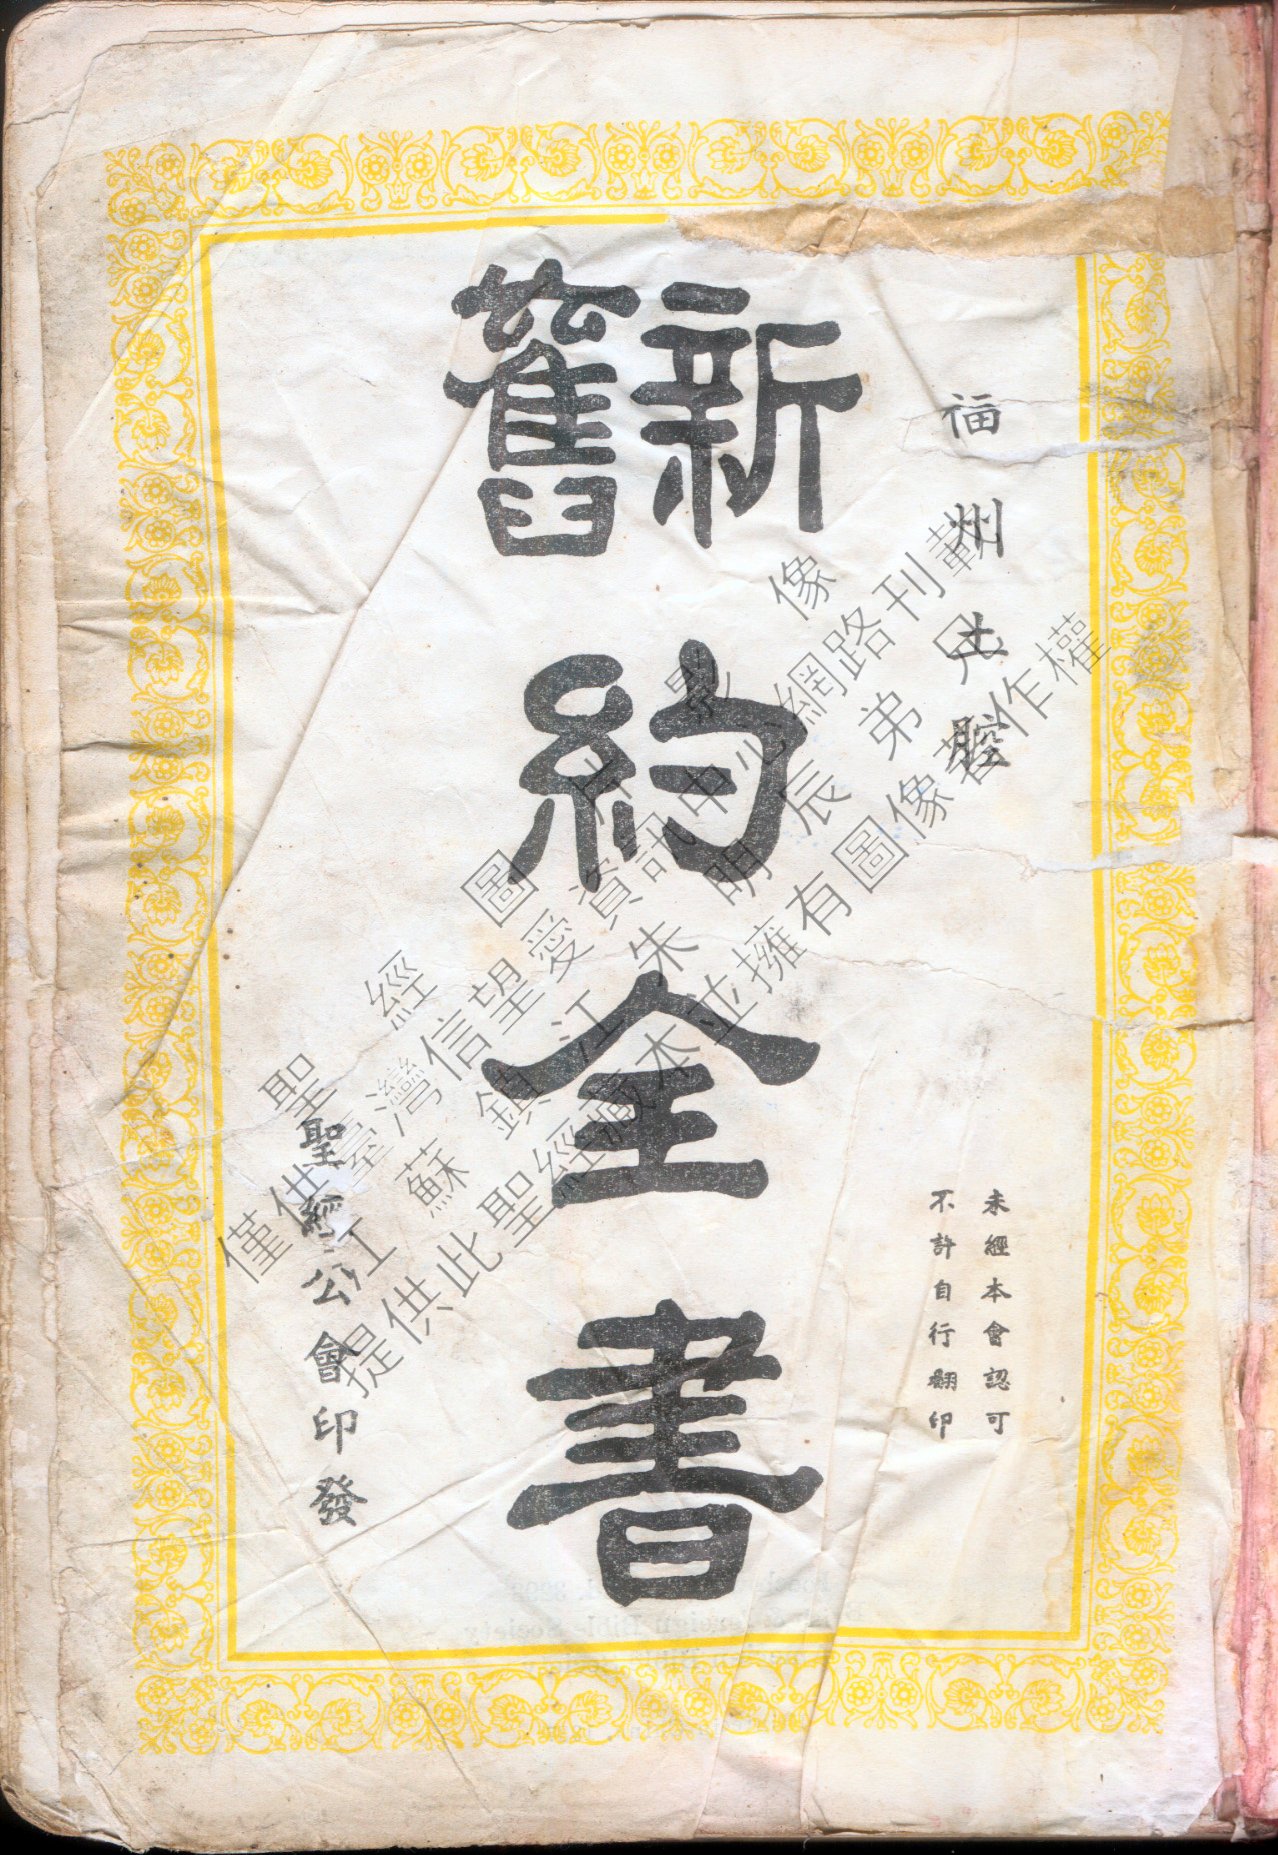 福州土腔
未經本會認可
不許自行翻印
新舊約全書
聖經公會印發
聖經圖片影像
僅供臺灣信望愛資訊中心網路刊載
江蘇鎮江朱明辰弟兄
提供此聖經藏本並擁有圖像著作權